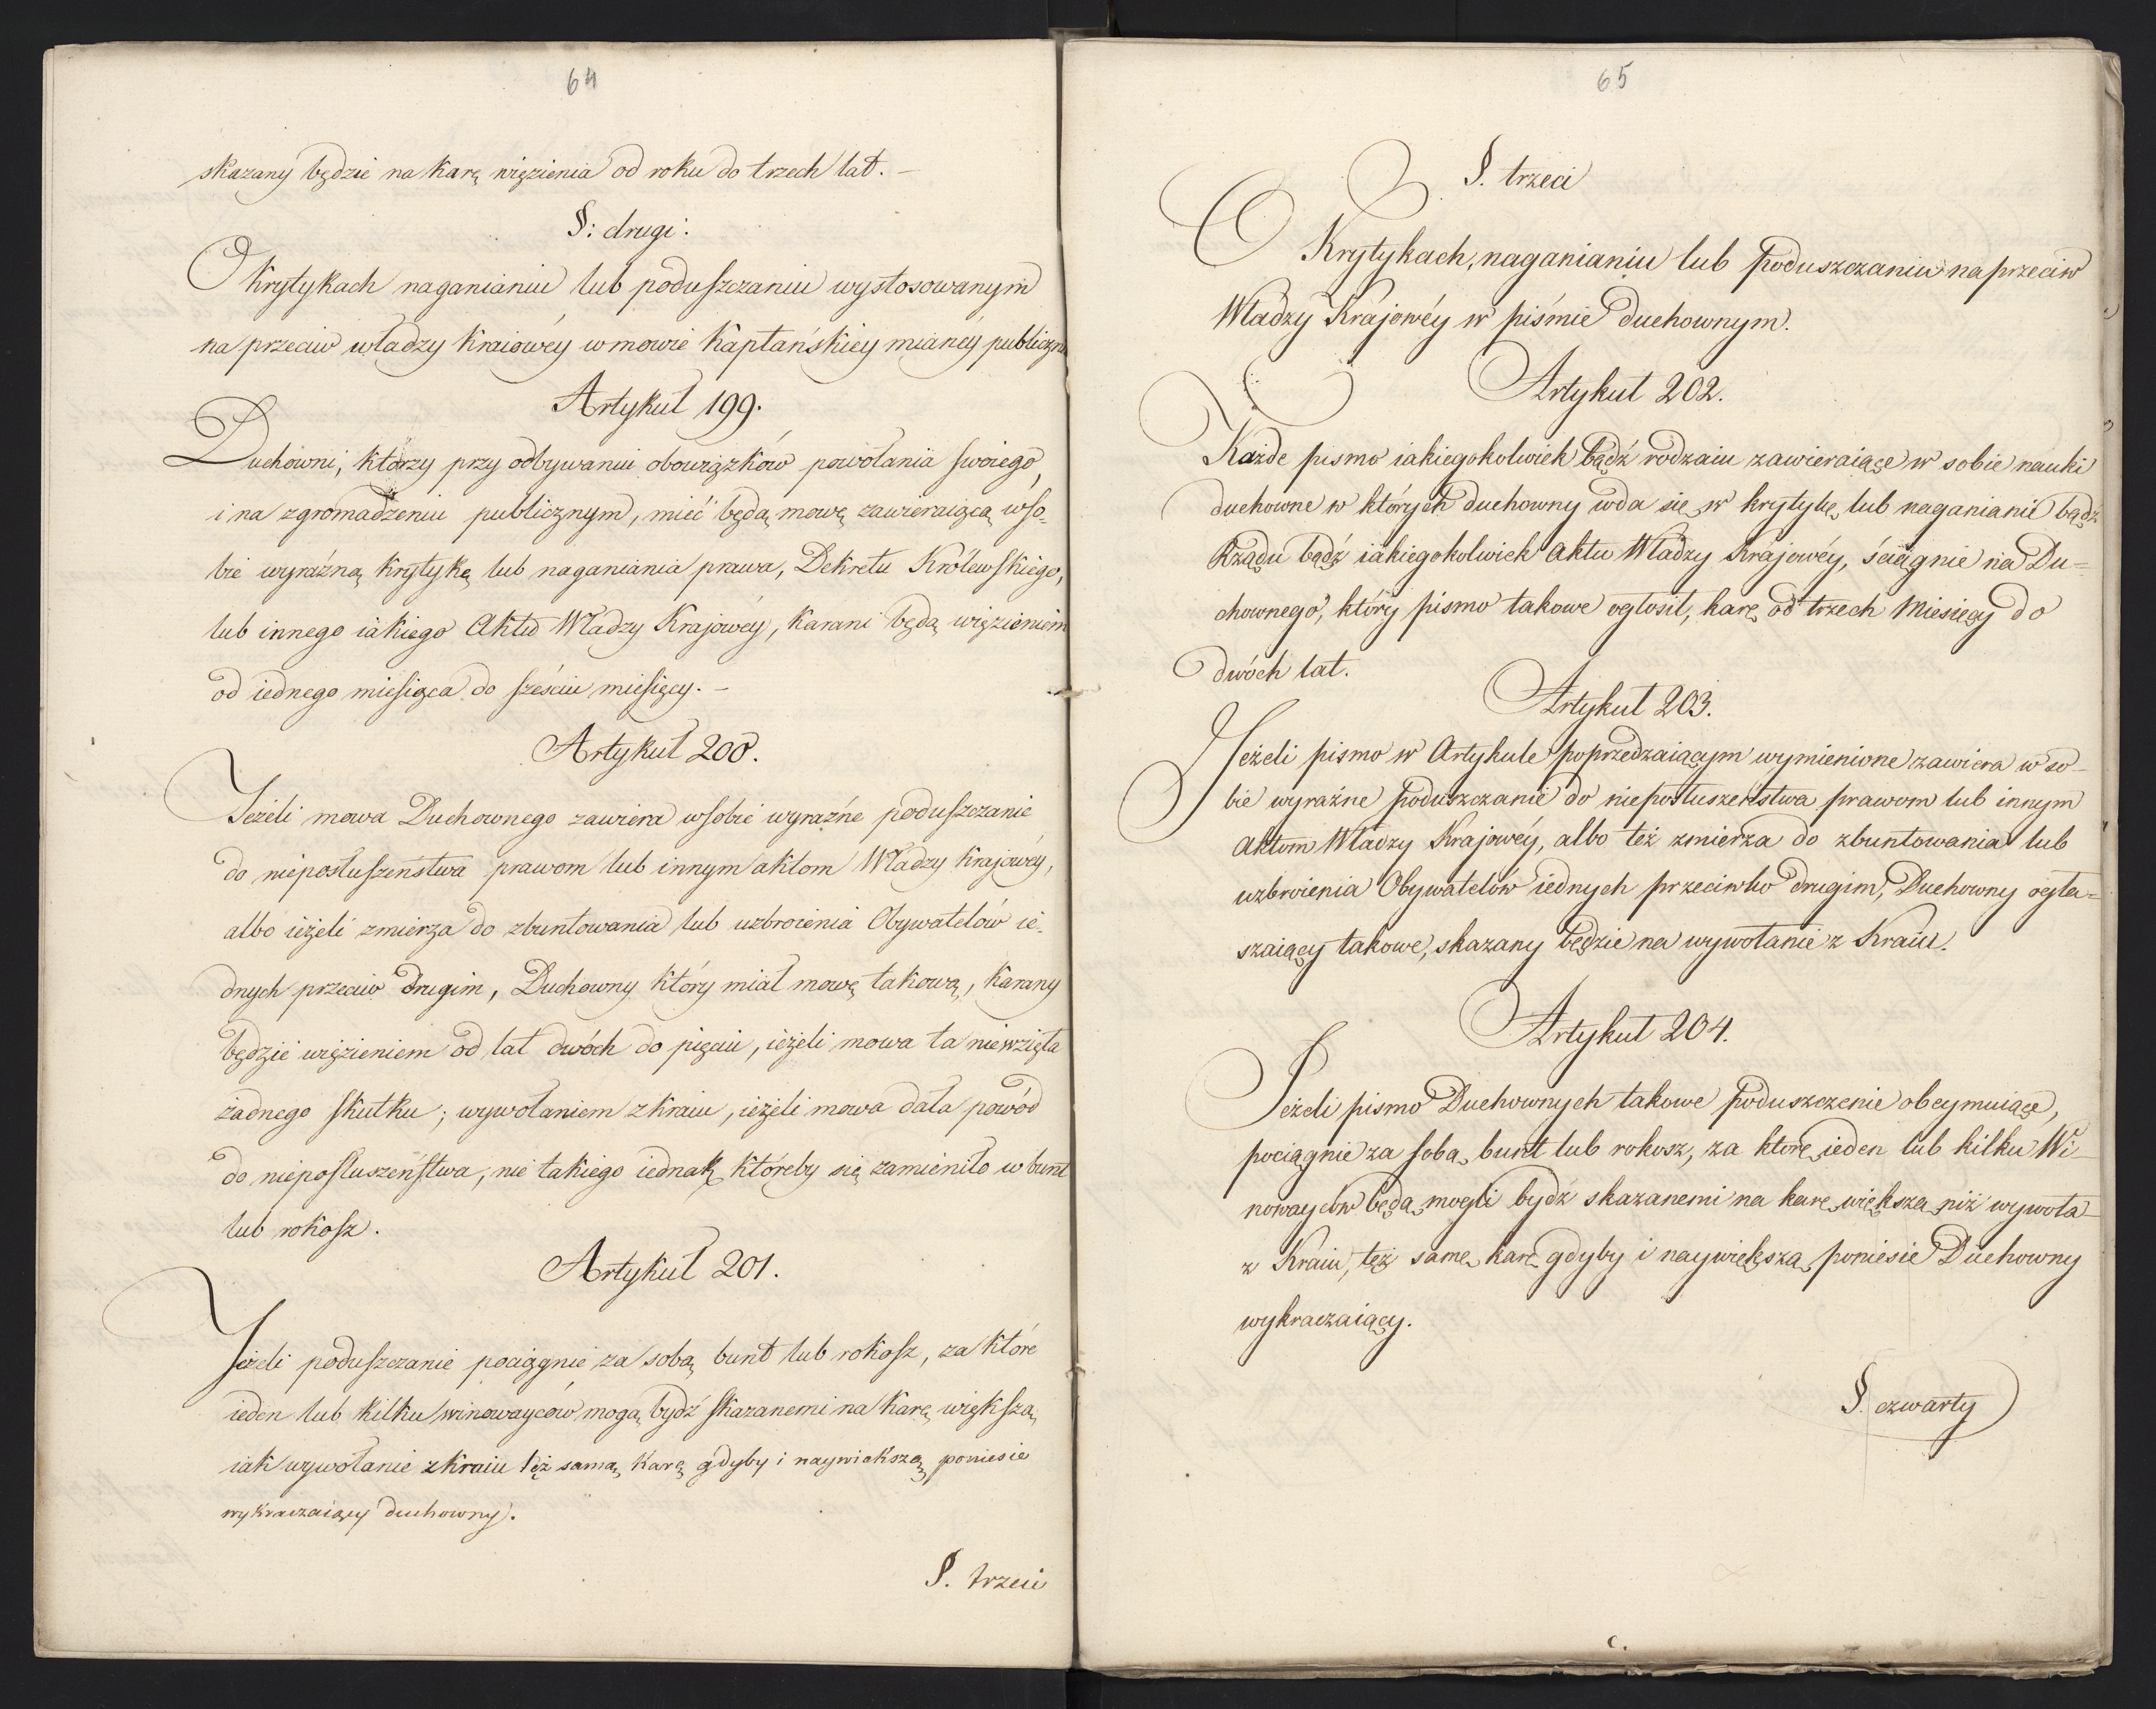 64
skazany będzie na karę więzienia od roku do trzech lat. –
§: drugi:
O Krytykach naganianiu lub poduszczaniu wystosowanym
na przeciw władzy kraiowéy w mowie kapłańskiey mianéy publiczn
Artykuł 199.
Duchowni, którzy przy odbywaniu obowiązków powołania swoiego,
i na zgromadzeniu publicznym, mieć będą mowę zawieraiącą w so-
bie wyraźną krytykę lub naganiania prawa, Dekretu Królewskiego,
lub innego iakiego Aktu Władzy Krajowéy, karani będą więzieniem
od iednego miesiąca do sześciu miesięcy. –
Artykuł 200.
Jeżeli mowa Duchownego zawiera w sobie wyraźne poduszczanie
do nieposłuszeństwa prawom lub innym aktom Władzy krajowéy,
albo ieżeli zmierza do zbuntowania lub uzbroienia Obywatelów ie-
dnych przeciw drugim, Duchowny który miał mowę takową, karany
będzie więzieniem od lat dwóch do pięciu, ieżeli mowa ta niewzięła
żadnego skutku; wywołaniem z kraiu, ieżeli mowa dała powód
do nieposłuszeństwa, nie takiego iednak, któreby się zamieniło w bunt
lub rokosz.
Artykuł 201.
Jeżeli poduszczanie pociągnie za sobą bunt lub rokosz, za które
ieden lub kilku winowayców mogą bydź skazanemi na karę większą,
iak wywołanie z kraiu też samą karę gdyby i naywiekszą, poniesie
wykraczaiący duchowny.
§. trzeci
65
§. trzeci
O Krytykach, naganianiu lub poduszczaniu naprzeciw
Władzy Krájowéy w piśmie duchownym.
Artykuł 202.
Każde pismo iakiegokolwiek bądź rodzaiu zawieraiące w sobie nauki
duchowne w których duchowny wda się w krytykę lub naganianie bądź
Rządu bądź iakiegokolwiek Aktu Władzy Krajowéy, ściągnie na Du-
chownego, który pismo takowe ogłosił, karę od trzech Miesięcy do
dwóch lat.
Artykuł 203.
Jeżeli pismo w Artykule poprzedzaiącym wymienione zawiera w so-
bie wyraźne poduszczanie do nieposłuszeństwa prawom lub innym
Aktom Władzy Krajowéy, albo też zmierza do zbuntowania lub
uzbroienia Obywatelów iednych przeciwko drugim, Duchowny ogła-
szaiący takowe, skazany będzie na wywołanie z Kraiu.
Artykuł 204.
Jeżeli pismo Duchownych takowe poduszczenie obeymuiące,
pociągnie za sobą bunt lub rokosz, za które ieden lub kilku Wi-
nowayców będą mogli bydź skazanemi na karę większą niż wywoła-
z Kraiu, też samę karę gdyby i naywiększą, poniesie Duchowny
wykraczaiący.
§. czwarty